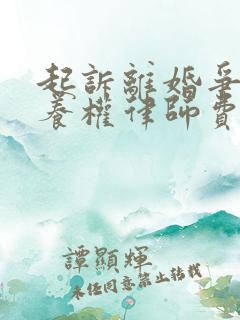 起訴離婚爭
養權律師費
譚顯輝
未任同意禁止轉載